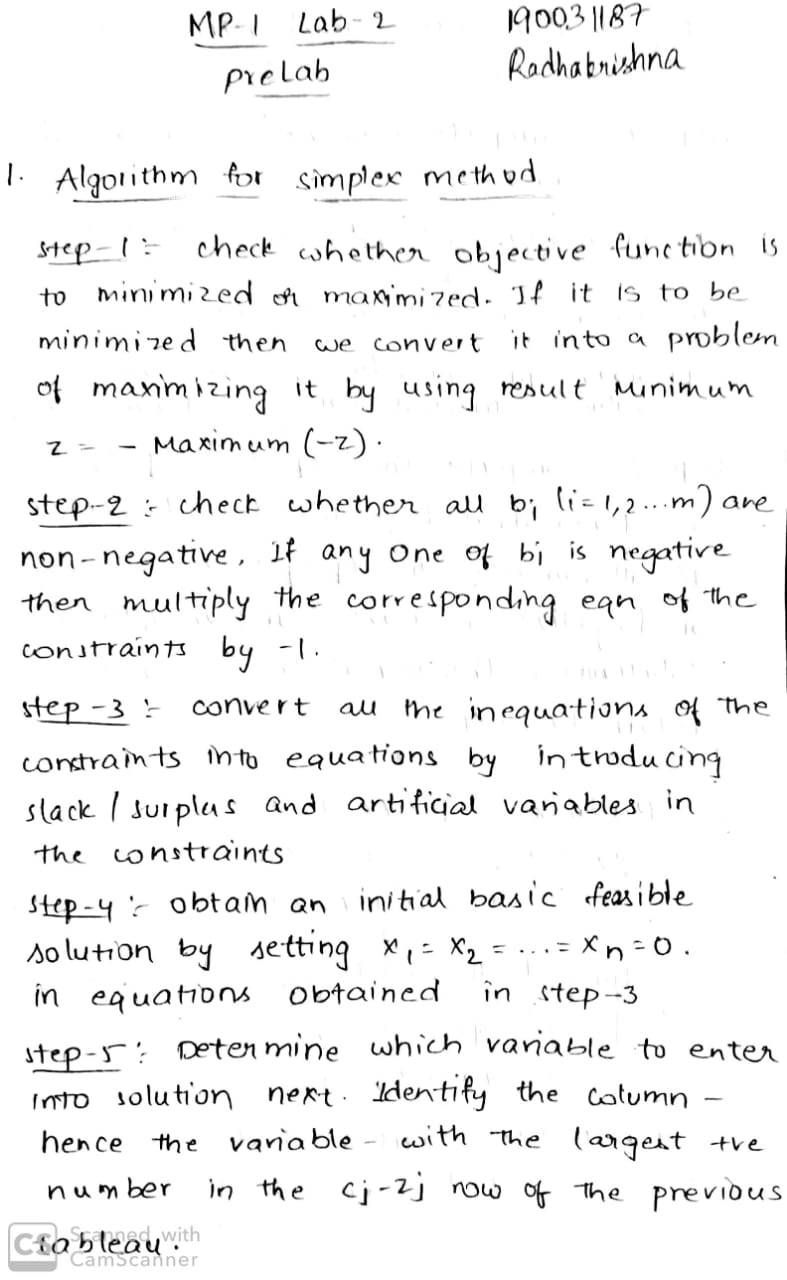 MP-1 Lab-2
190031187
prelab
Radhakrishna
1. Algorithm for simplex method
step-1:- check whether objective function is
to minimized or maximized. If it is to be
minimized then we convert it into a problem
of maximizing it by using result Minimum
z = - Maximum (-z).
step-2 :- check whether all bi (i=1,2...m) are
non-negative, If any one of bi is negative
then multiply the corresponding eqn of the
constraints by -1.
step-3 :- convert all the inequations of the
constraints into equations by introducing
slack / surplus and artificial variables in
the constraints
step-4 :- obtain an initial basic feasible
solution by setting x₁ = x₂ = ... = xn = 0.
in equations obtained in step-3
step-5 :- Determine which variable to enter
into solution next. Identify the column -
hence the variable - with the largest +ve
number in the cj-zj row of the previous
tableau.
CS Scanned with
CamScanner